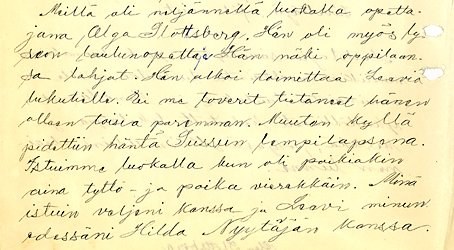 Meillä oli neljännellä luokalla opetta-
jana Olga Slottsberg. Hän oli myös ly-
seon laulunopettaja. Hän näki oppilaan-
sa lahjat. Hän alkoi toimittaa Leeviä
lukutielle. Ei me toverit tietäneet hänen
olleen toisia paremman. Muuten kyllä
pidettiin häntä Sussun lempilapsena.
Istuimme luokalla kun oli poikiakin
aina tyttö- ja poika vierekkäin. Minä
istuin veljeni kanssa ja Leevi minun
edessäni Hilda Nyytäjän kanssa.